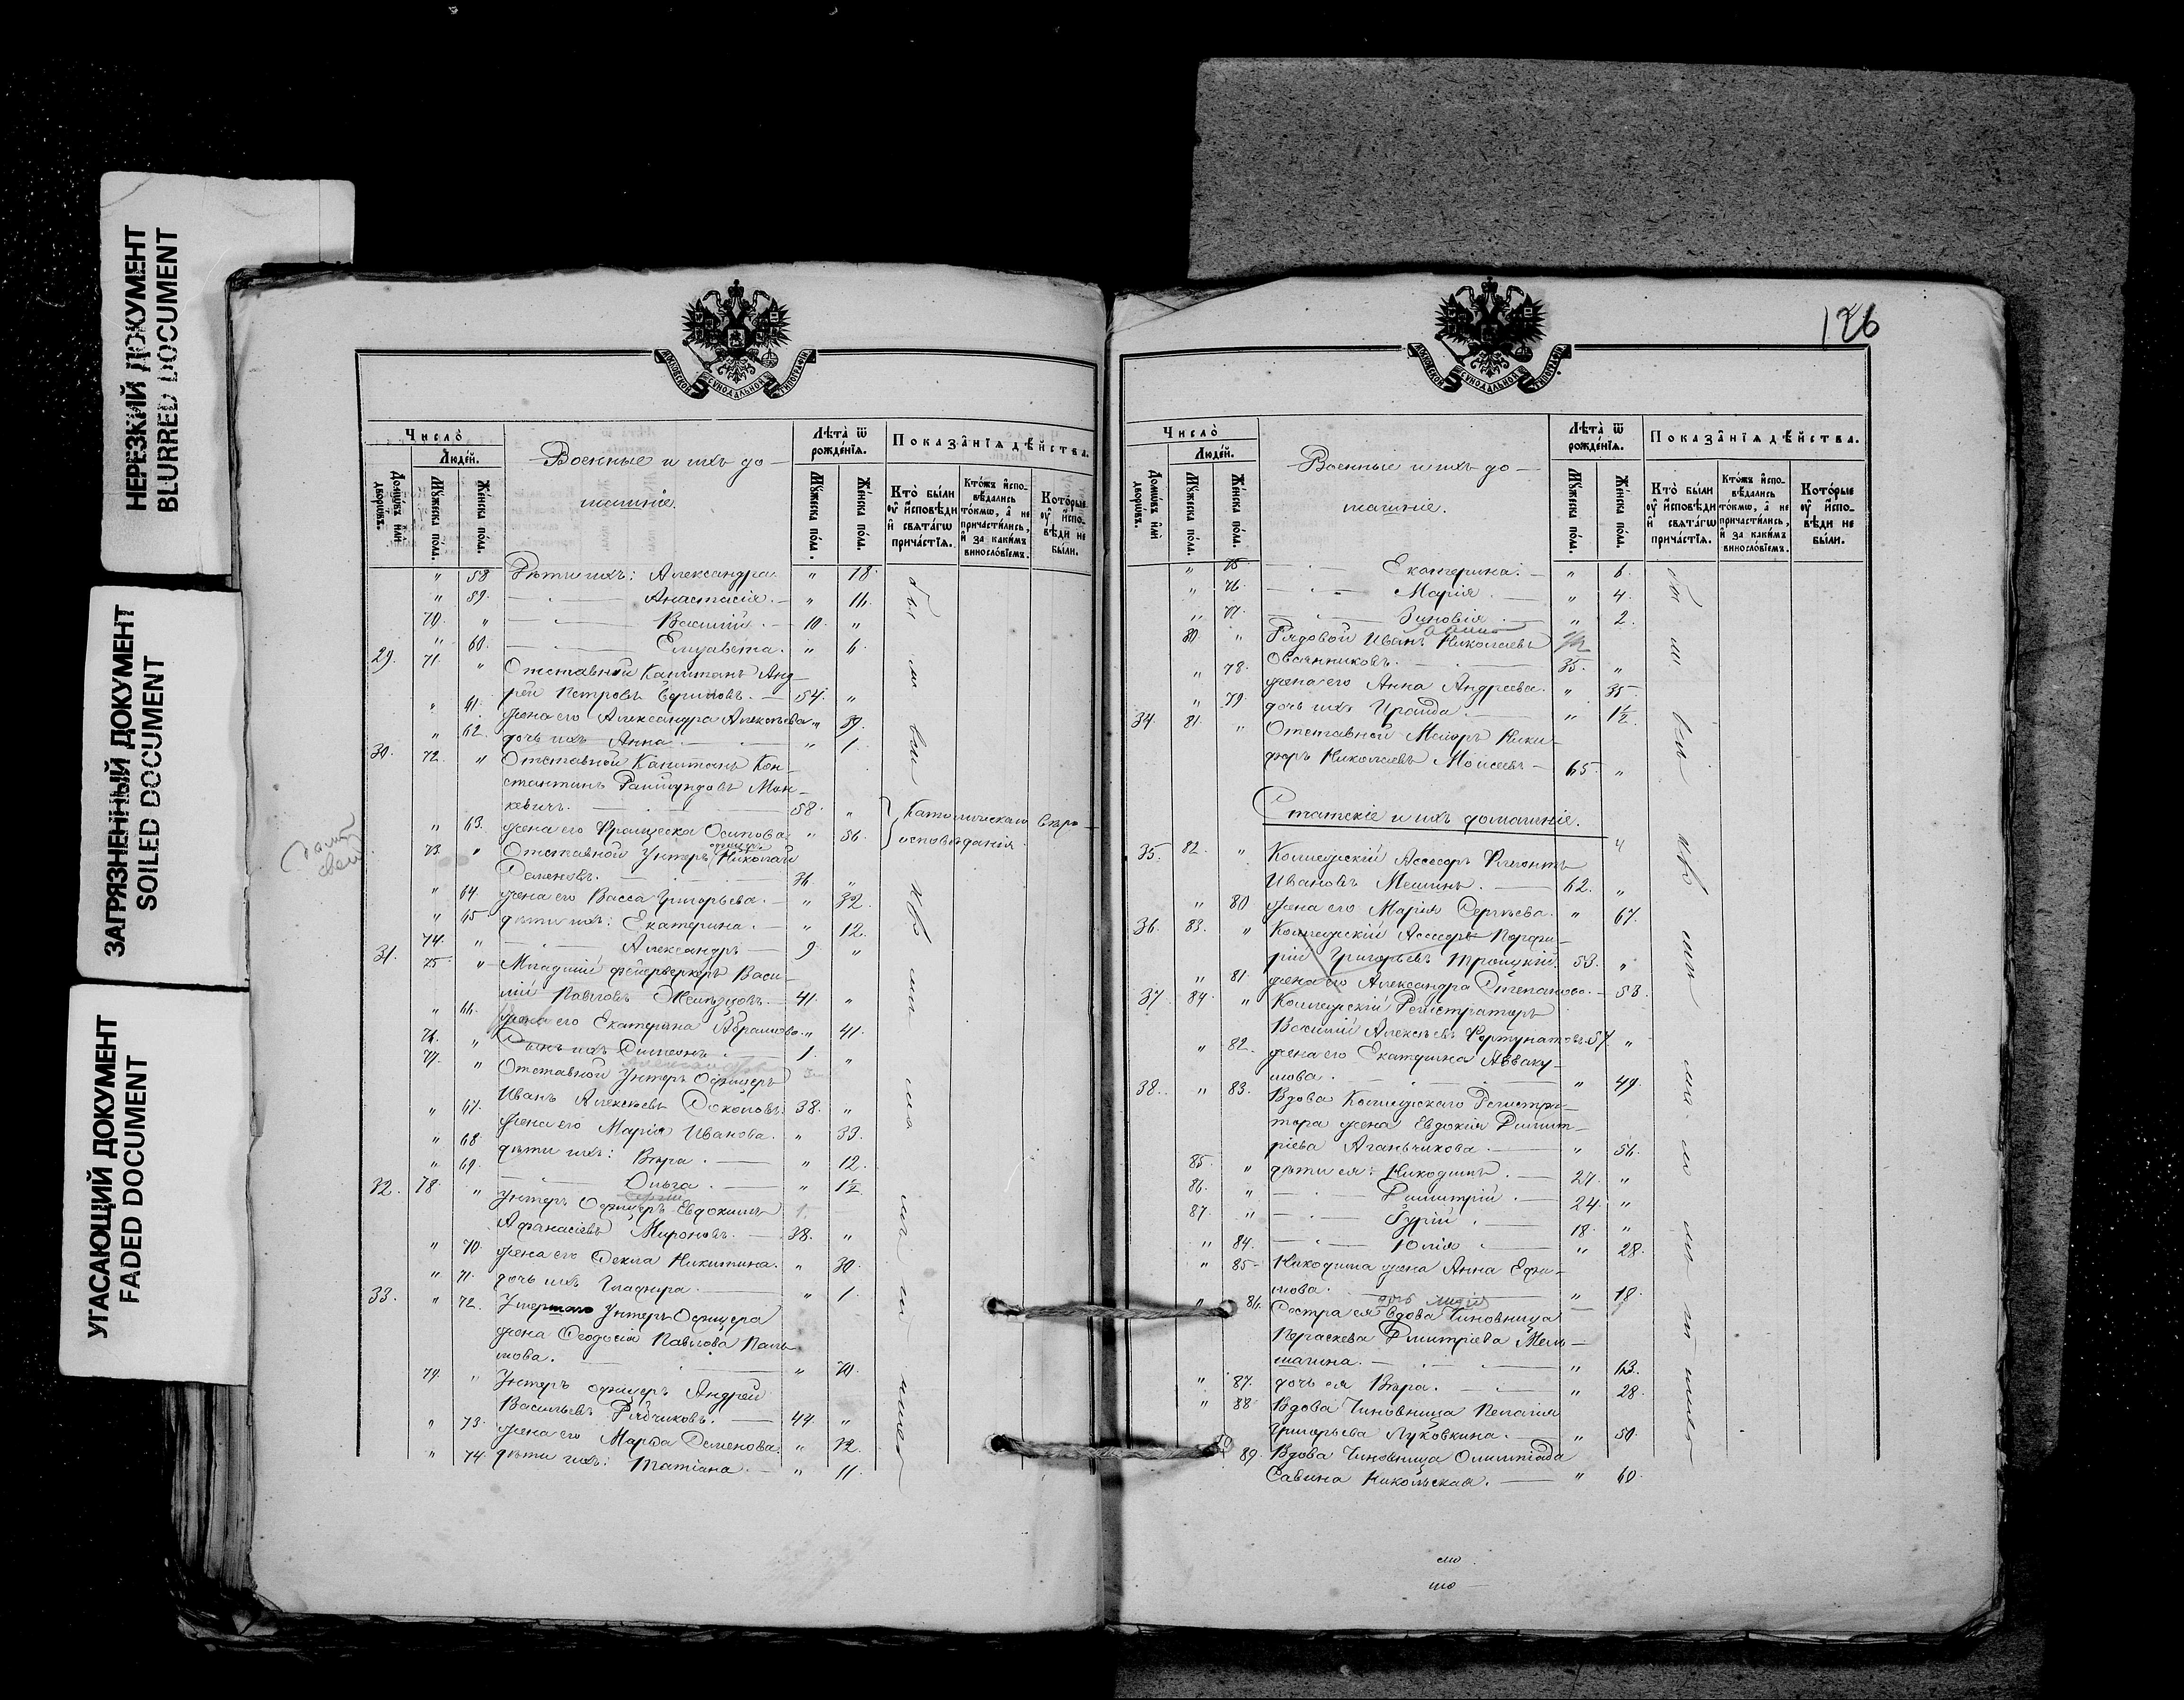 НЕРЕЗКИЙ ДОКУМЕНТ
BLURRED DOCUMENT
ЗАГРЯЗНЕННЫЙ ДОКУМЕНТ
SOILED DOCUMENT
УГАСАЮЩИЙ ДОКУМЕНТ
FADED DOCUMENT
МОСКОВСКОЙ СѴНОДАЛЬНОЙ ТИПОГРАФІИ
Число̀
Людéй.
Домѡ́въ и҆лѝ дворѡ́въ.
Мꙋ́жеска пóла.
Же́нска пóла.
Военные и ихъ до-
машніе.
Лѣ́та ѿ рожде́нїѧ.
Мꙋ́жеска пóла.
Же́нска пóла.
Показа̂нїѧ дѣ́йства.
Кто̀ бы́ли ᲂу҆ и҆́сповѣди и҆ свѧта́гѡ прича́стїѧ.
Кто́жъ и҆спо-вѣ́дались то́кмѡ, а҆ не причасти́лись, и҆ за каки́мъ винослóвїемъ.
Кото́рые ᲂу҆ и҆́спо-вѣди не бы́ли.
" 58 Дѣти ихъ: Александра " 18.
" 59. Анастасія. " 14.
70. " Василій. 10. "
" 60. Елизавета. " 6.
29. 71. " Отставной Капитанъ Анд-
рей Петровъ 54. "
" 61. жена его Александра Алексѣева " 39.
" 62. дочь ихъ Анна " 1.
30. 72. " Отставной Капитанъ Кон-
стантинъ Раймундовъ Мон-
кевичъ. 58. "
" 63. жена его Францеска Осипова " 56. Католическаго вѣро-
исповѣданія.
73. " Отставной Унтеръ офицеръ Николай
Семеновъ. 36. "
" 64. жена его Васса Григорьева. " 32.
" 65 дѣти ихъ: Екатерина. " 12.
74. " Александръ 9. "
31. 75. " Младшій фейерверкеръ Васи-
лій Павловъ 41. "
" 66. жена его Екатерина Абрамова. " 41.
76. " Сынъ ихъ Симеонъ. 1. "
77. " Отставной Унтеръ Офицеръ
Иванъ Алексѣевъ Соколовъ. 38. "
" 67. жена его Марія Иванова. " 33.
" 68 дѣти ихъ: Вѣра. " 12.
" 69. Ольга. " 1½
32. 78. " Унтеръ Офицеръ Евдокимъ
Сергій 1.
Афанасьевъ Мироновъ. 38. "
" 70. жена его Фекла Никитина. " 30.
" 71. дочь ихъ Глафира. " 1.
33. " 72. Умершаго Унтеръ Офицера
жена Феодосія Павлова Паль-
мова. " 70.
79. " Унтеръ офицеръ Андрей
Васильевъ Рябчиковъ. 44. "
" 73. жена его Марѳа Семенова " 42.
" 74. дѣти ихъ: Татіана. " 11.
126
МОСКОВСКОЙ СѴНОДАЛЬНОЙ ТИПОГРАФІИ
Число̀
Людéй.
Домѡ́въ и҆лѝ дворѡ́въ.
Мꙋ́жеска пóла.
Же́нска пóла.
Военные и ихъ до-
машніе.
Лѣ́та ѿ рожде́нїѧ.
Мꙋ́жеска пóла.
Же́нска пóла.
Показа̂нїѧ дѣ́йства.
Кто̀ бы́ли ᲂу҆ и҆́сповѣди и҆ свѧта́гѡ прича́стїѧ.
Кто́жъ и҆спо-вѣ́дались то́кмѡ, а҆ не причасти́лись, и҆ за каки́мъ винослóвїемъ.
Кото́рые ᲂу҆ и҆́спо-вѣди не бы́ли.
" 75 Екатерина. " 6.
" 76. Марія " 4.
" 77. Зиновія " 2.
80. " Рядовой Иванъ Николаевъ
Овсянниковъ. 35. "
" 78. жена его Анна Андреева. " 35.
" 79. дочь ихъ Ираида. " 1½
34 81. " Отставной Маіоръ Ники-
форъ Николаевъ Моисеевъ 65. "
Статскіе и ихъ домашніе.
35. 82. " Коллежскій Ассесоръ Филиппъ
Ивановъ Мешинъ. 62. "
" 80 жена его Марія Сергѣева. " 67.
36. 83. " Коллежскій Ассесоръ Порфи-
рій Григорьевъ Троицкій. 53. "
" 81. жена его Александра Степанова. 53.
37. 84. " Коллежскій Регистраторъ
Василій Алексѣевъ Фортунатовъ 57. "
" 82. жена его Екатерина Аввваку-
мова. " 49.
38. " 83. Вдова Коллежскаго Регистра-
тора жена Евдокія Димит-
ріева Аганьчикова. " 56.
85. " дѣти ея: Никодимъ. 27. "
86. " Димитрій. 24 "
87. " Гурій. 18. "
" 84. Юлія " 28.
" 85. Никодима жена Анна Ефи-
мова. " 18.
дочь Лидія
" 86. Сестра ея вдова Чиновница
Параскева Димитріева Мель-
шагина. " 63.
" 87. дочь ея Вѣра. " 28.
" 88. Вдова Чиновница Пелагія
Григорьева Луковкина. " 50.
89. Вдова Чиновница Олимпіада
Савина Никольская. " 60.